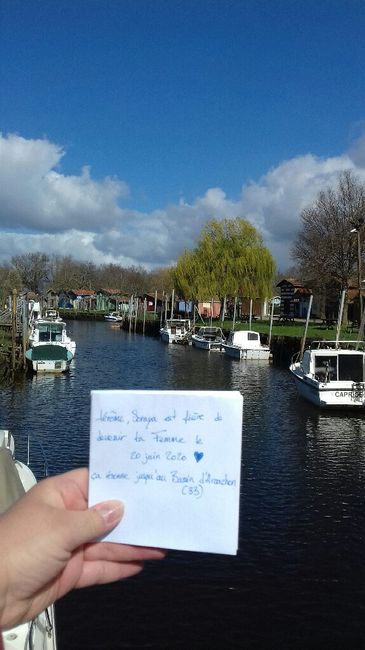 Jérôme, Soraya est fière de
devenir ta Femme le
20 juin 2020 ♥
ça étonne jusqu'au Bassin d'Arcachon
(33)
CAPRICE